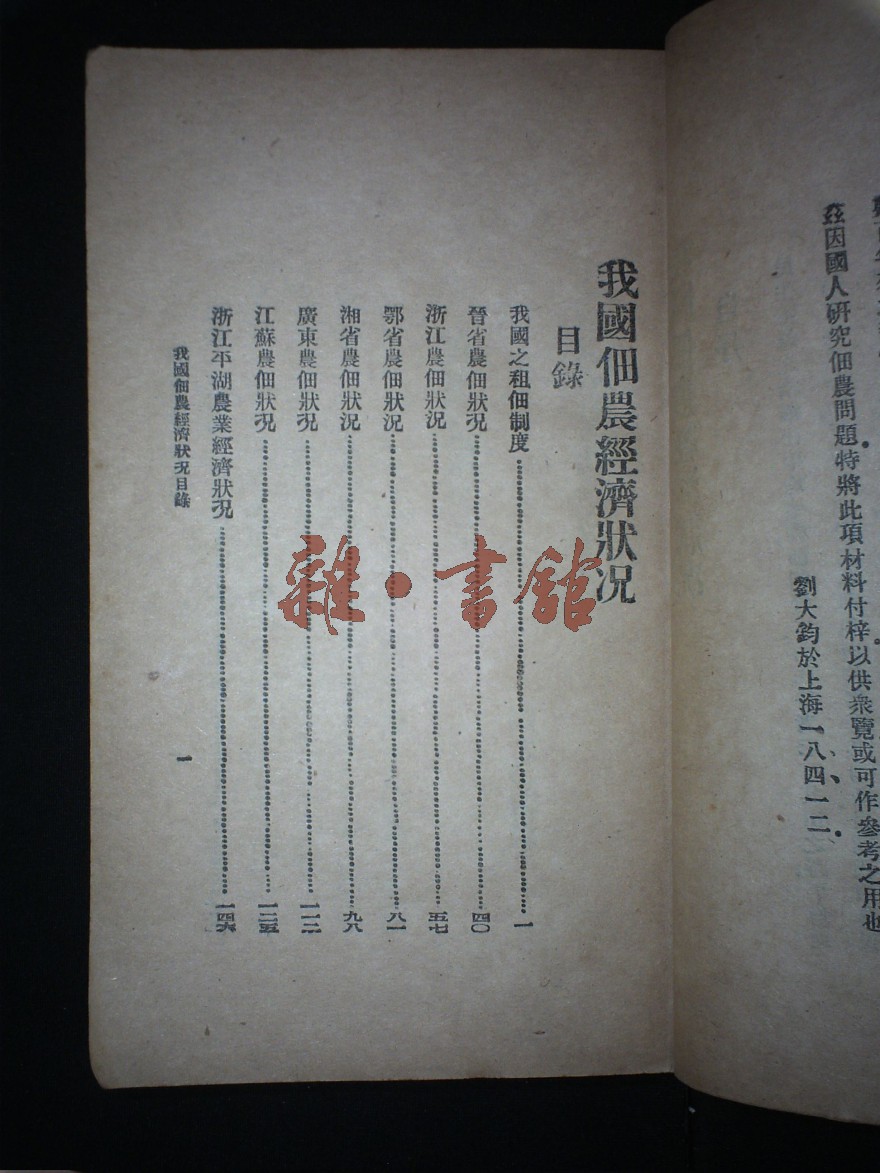 茲因國人研究佃農問題特將此項材料付梓以供衆覽或可作參考之用也
劉大鈞於上海一八、四、一二
我國佃農經濟狀況
目錄
我國之租佃制度……一
晉省農佃狀況……四〇
浙江農佃狀況……五七
鄂省農佃狀況……八一
湘省農佃狀況……九八
廣東農佃狀況……一一二
江蘇農佃狀況……一二五
浙江平湖農業經濟狀況……一四六
我國佃農經濟狀況目錄
一
雜·書館